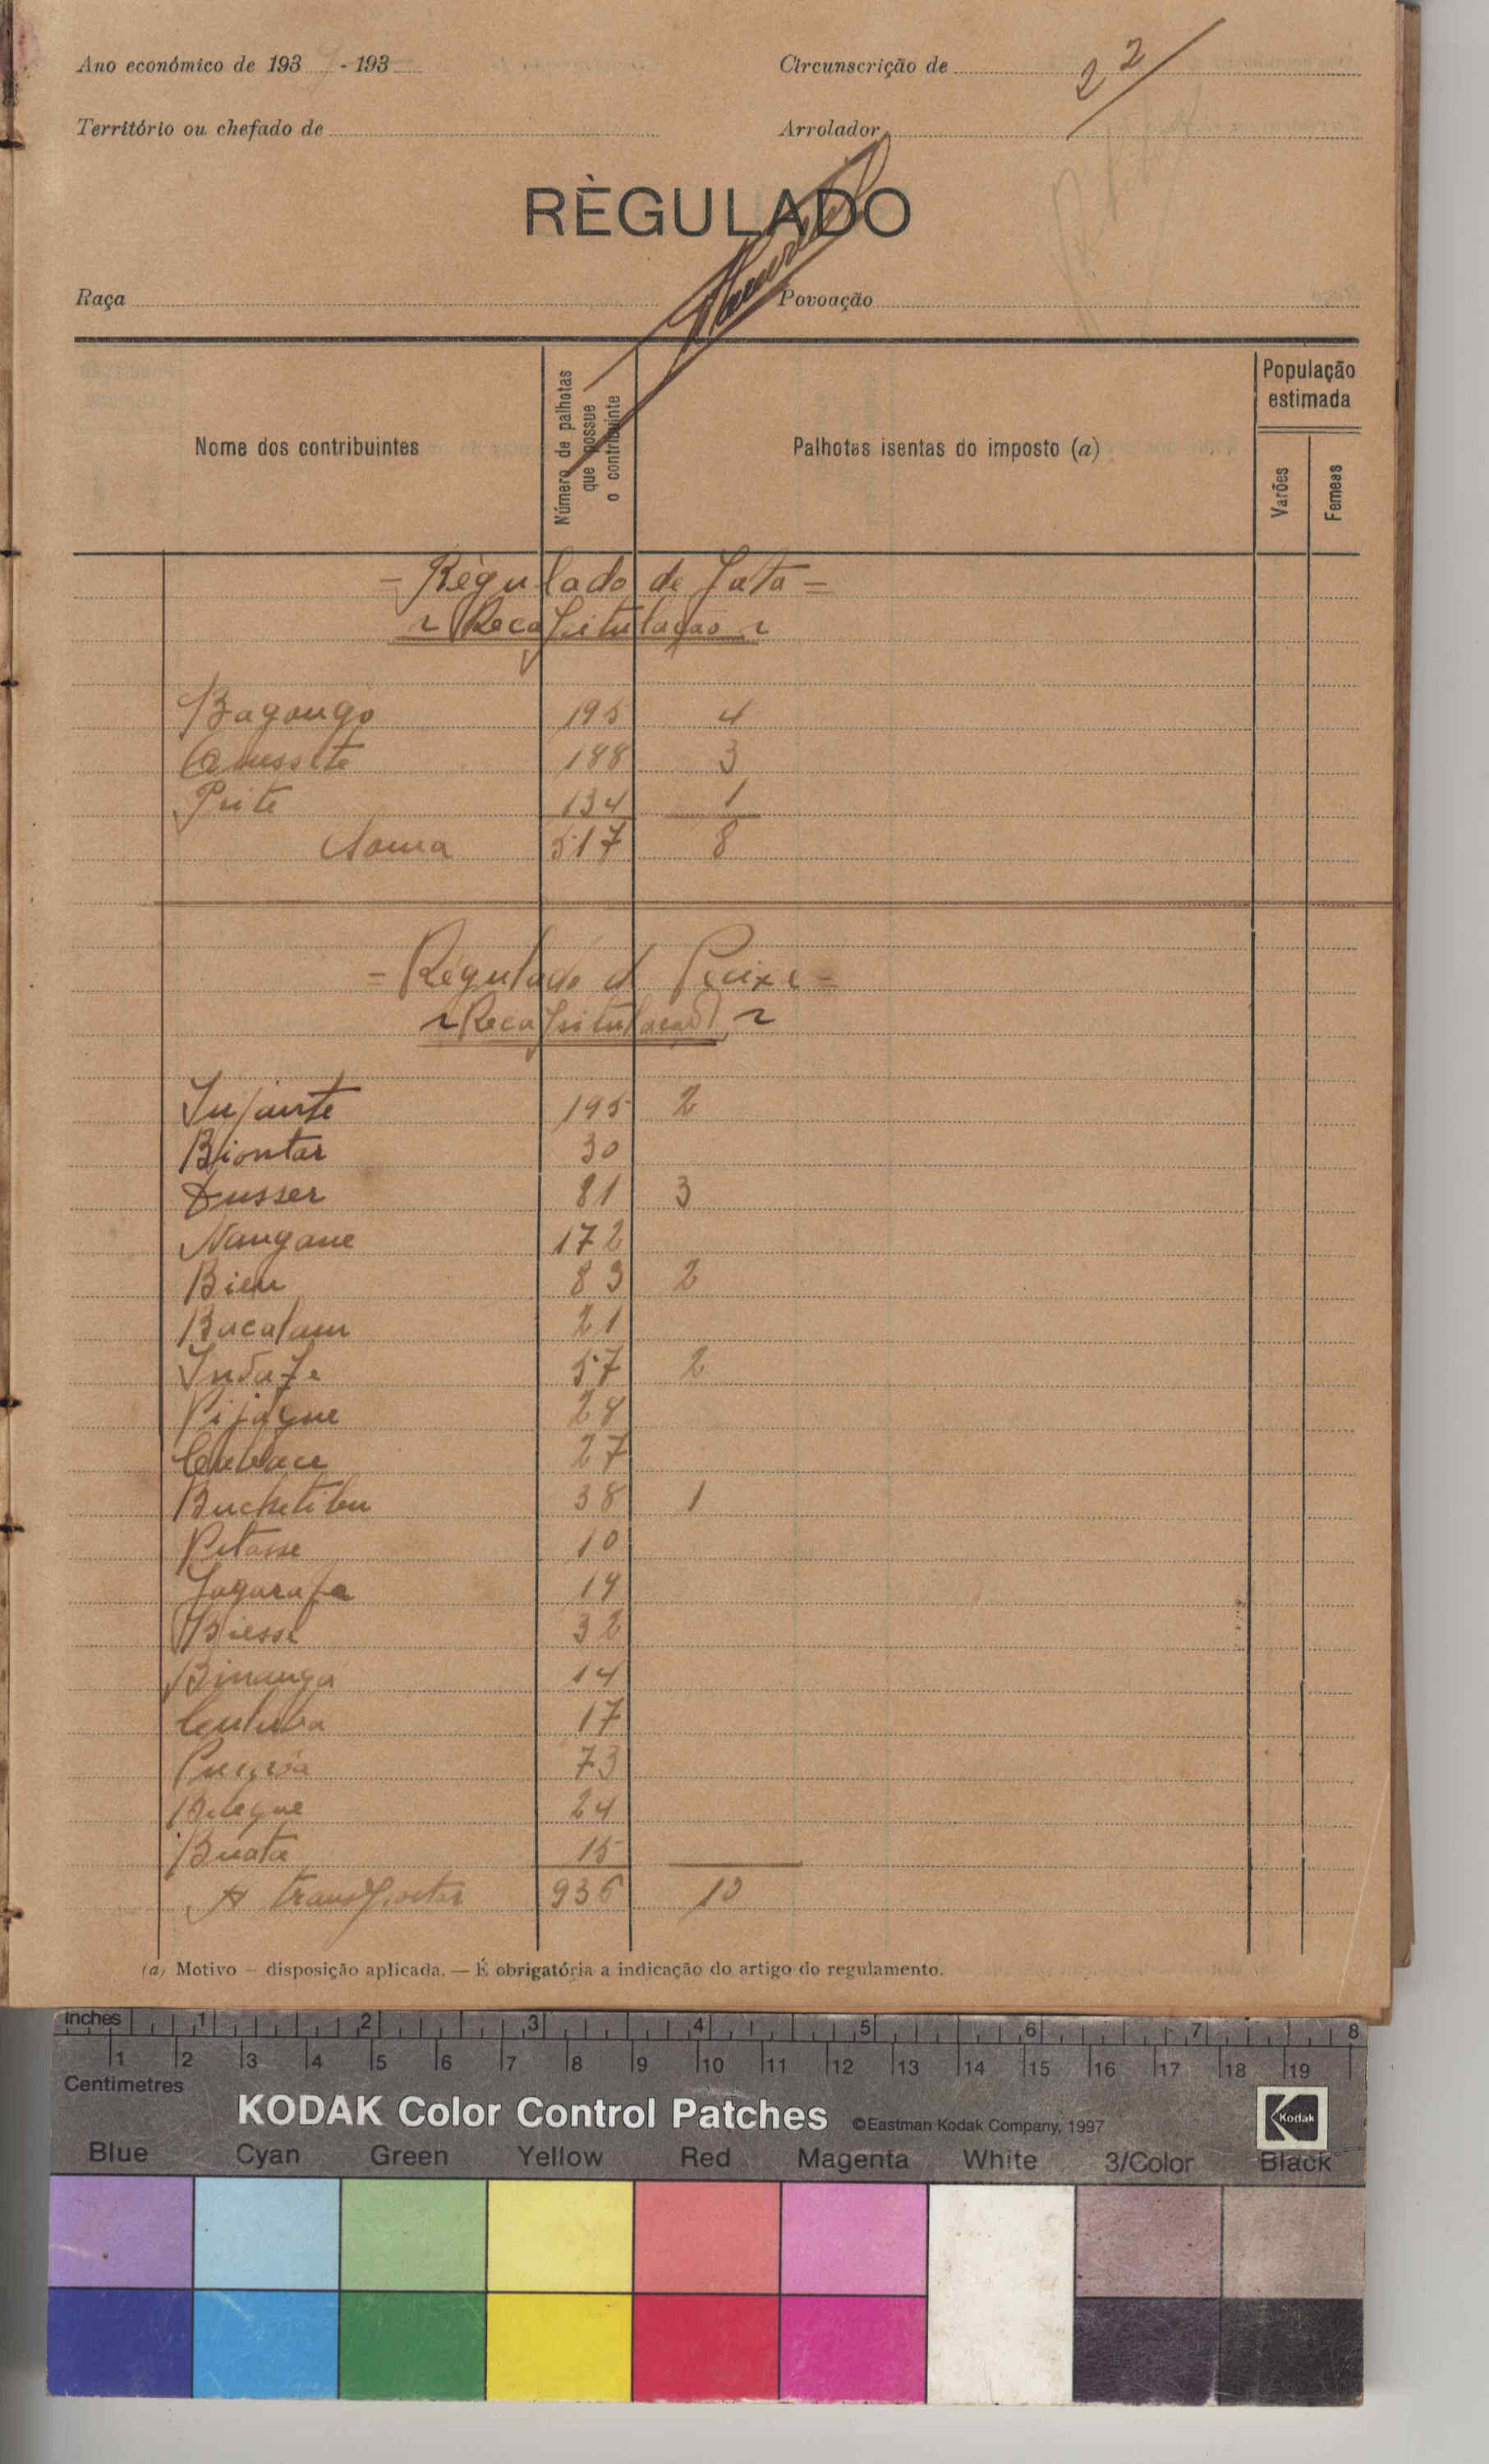 Ano económico de 193 - 193
Circunscrição de
22
Território ou chefado de
Arrolador
RÈGULADO
Raça
Povoação
Nome dos contribuintes
Número de palhotas que possue o contribuinte
Palhotas isentas do imposto (a)
População estimada
Varões
Femeas
- Régulado de Jata =
Recapitulação
Bagongo 195 4
188 3
134 1
Soma 517 8
= Régulado d Peixe =
Recapitulação
195 2
Biontar 30
Dusser 81 3
Nangane 172
Bien 83 2
Bucalam 21
57 2
Pijaque 28
27
38 1
Petasse 10
19
Biesse 32
Binanga 14
17
73
24
Buata 15
A transportar 936 10
(a) Motivo — disposição aplicada. — É obrigatória a indicação do artigo do regulamento.
inches 1 2 3 4 5 6 7 8
1 2 3 4 5 6 7 8 9 10 11 12 13 14 15 16 17 18 19
Centimetres
KODAK Color Control Patches ©Eastman Kodak Company, 1997 Kodak
Blue Cyan Green Yellow Red Magenta White 3/Color Black